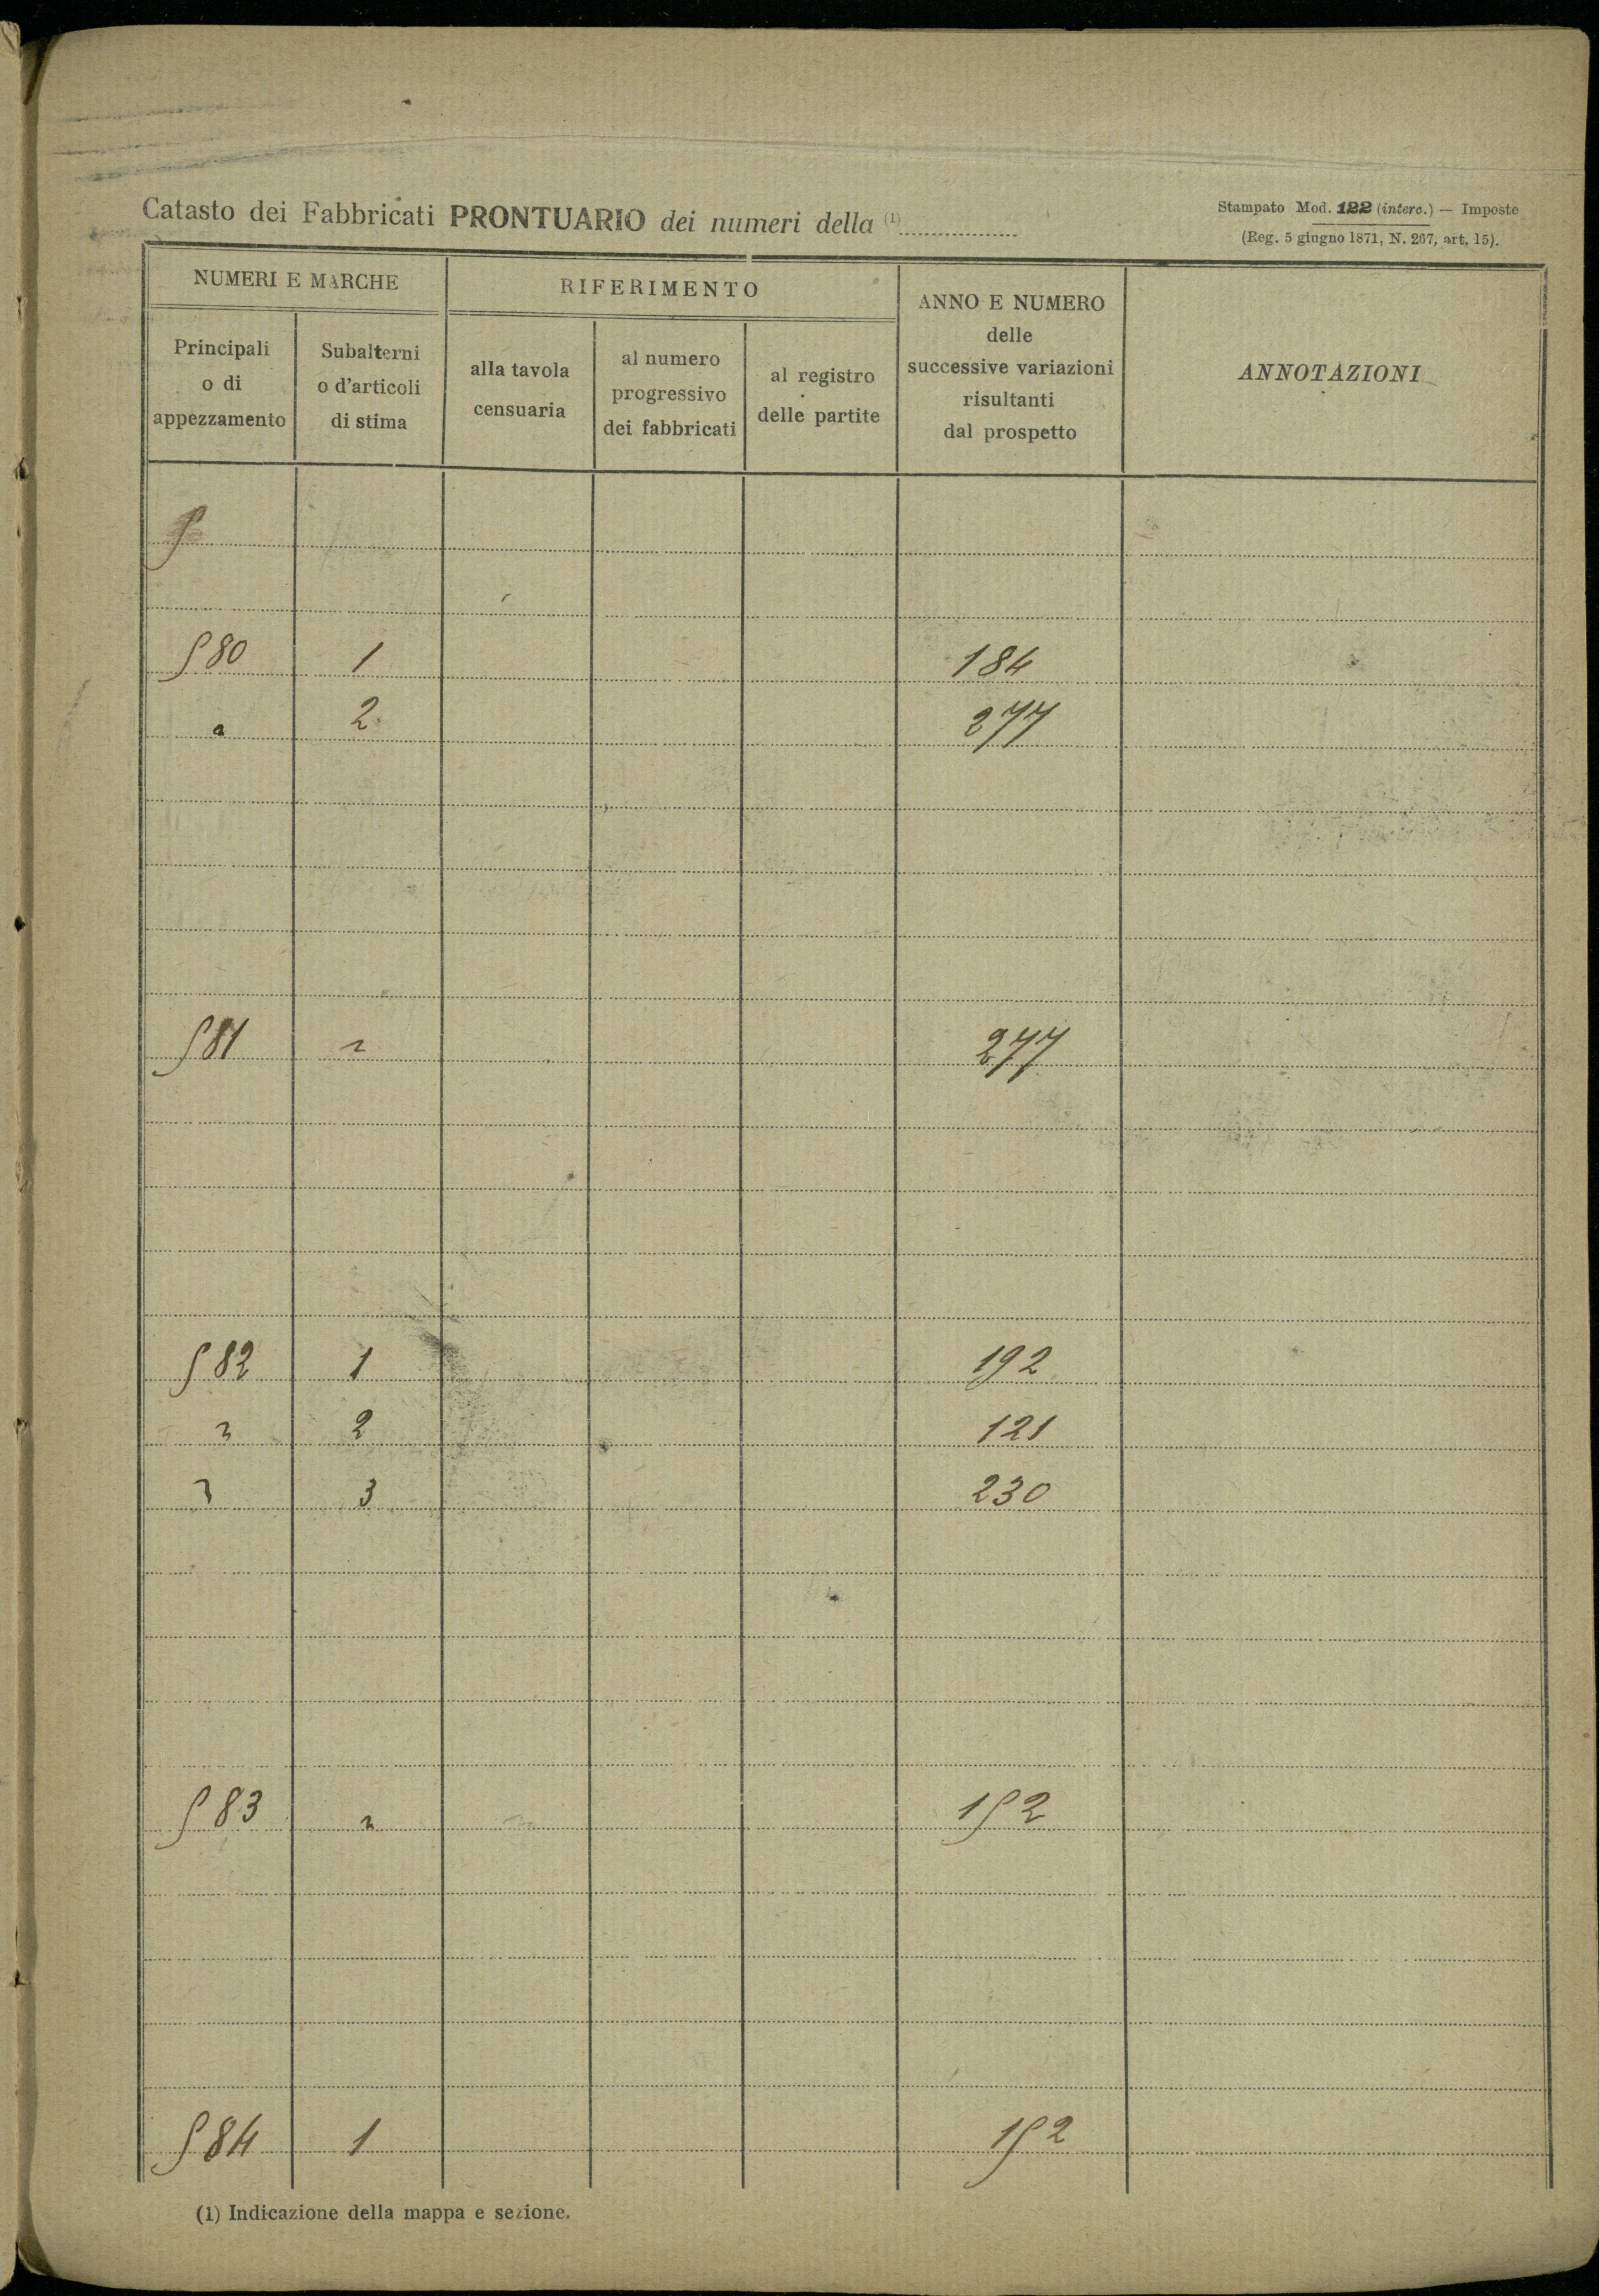 Catasto dei Fabbricati PRONTUARIO dei numeri della (1)
Stampato Mod. 122 (interc.) — Imposte
(Reg. 5 giugno 1871, N. 267, art. 15).
NUMERI E MARCHE
RIFERIMENTO
ANNO E NUMERO
delle
successive variazioni
risultanti
dal prospetto
ANNOTAZIONI
Principali
o di
appezzamento
Subalterni
o d'articoli
di stima
alla tavola
censuaria
al numero
progressivo
dei fabbricati
al registro
delle partite
5
580 1 184
" 2 277
581 " 277
582 1 192
" 2 121
" 3 230
583 " 152
584 1 152
(1) Indicazione della mappa e sezione.